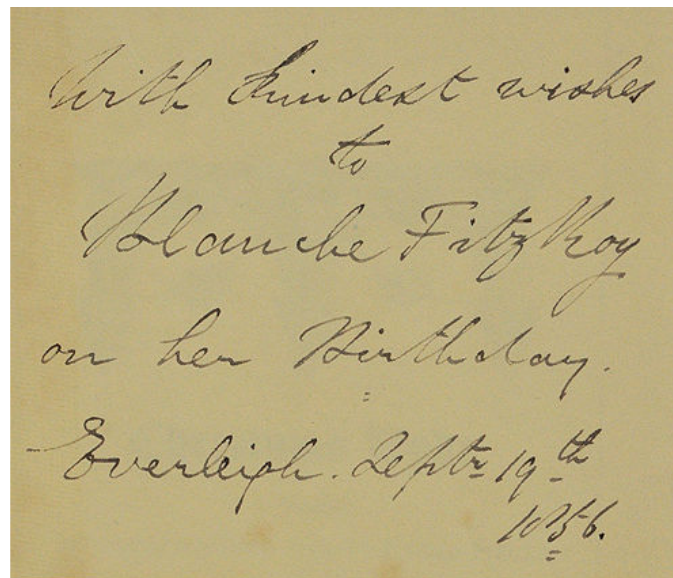 With kindest wishes
to
Blanche FitzRoy
on her Birthday.
Everleigh. Septr 19th
1856.